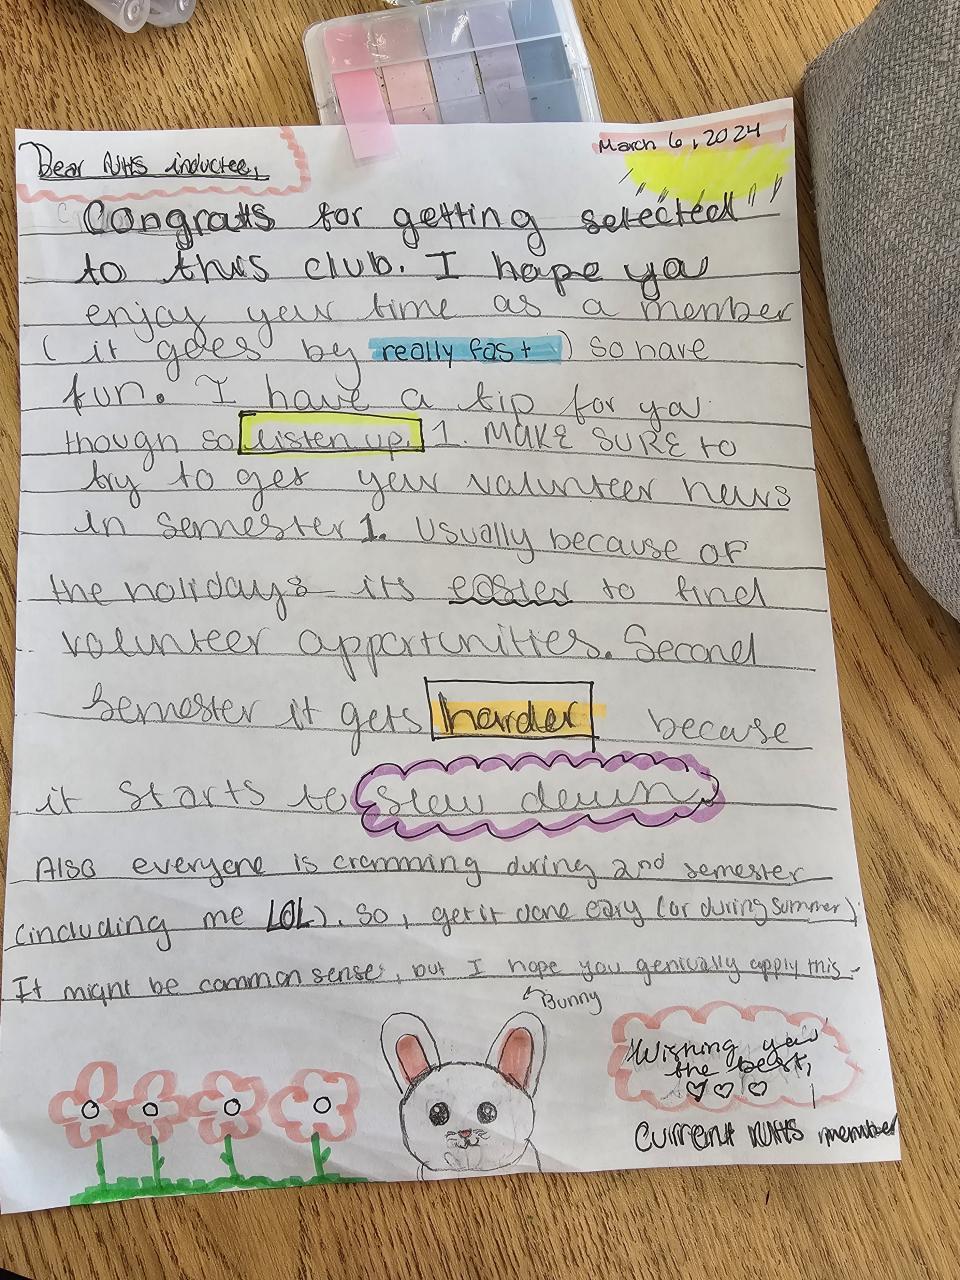 Dear NHS inductee,
March 6, 2024
Congrats for getting selected
to this club. I hope you
enjoy your time as a member
(it goes by really fast) so have
fun. I have a tip for ya
though so listen up. 1. MAKE SURE to
try to get your volunteer hours
in semester 1. Usually because of
the holidays its easier to find
volunteer opportunities. Second
semester it gets harder because
it starts to slow down
Also everyone is cramming during 2nd semester
(including me LOL). So, get it done early (or during summer)
It might be common sense, but I hope you genically apply this.
Bunny
Wishing you
the best,
Current NHS member